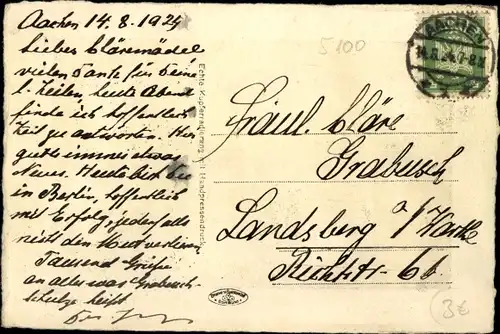 Aachen 14.8.1924
Liebes Cläremädel
vielen Dank für Deine
l. Zeilen heute Abend
finde ich hoffentlich
Zeit zu antworten. Hier
immer etwas
Neues. Heute bist Du
in Berlin, hoffentlich
mit Erfolg, jedenfalls
nicht den Mut verlieren
Tausend Grüße
an alles was Grabusch-
heißt
Echte Kupferradierung Handpressendruck
5100
AACHEN
Fräul. Cläre
Grabusch
Landsberg a/Warthe
Richtstr. 6b.
3€